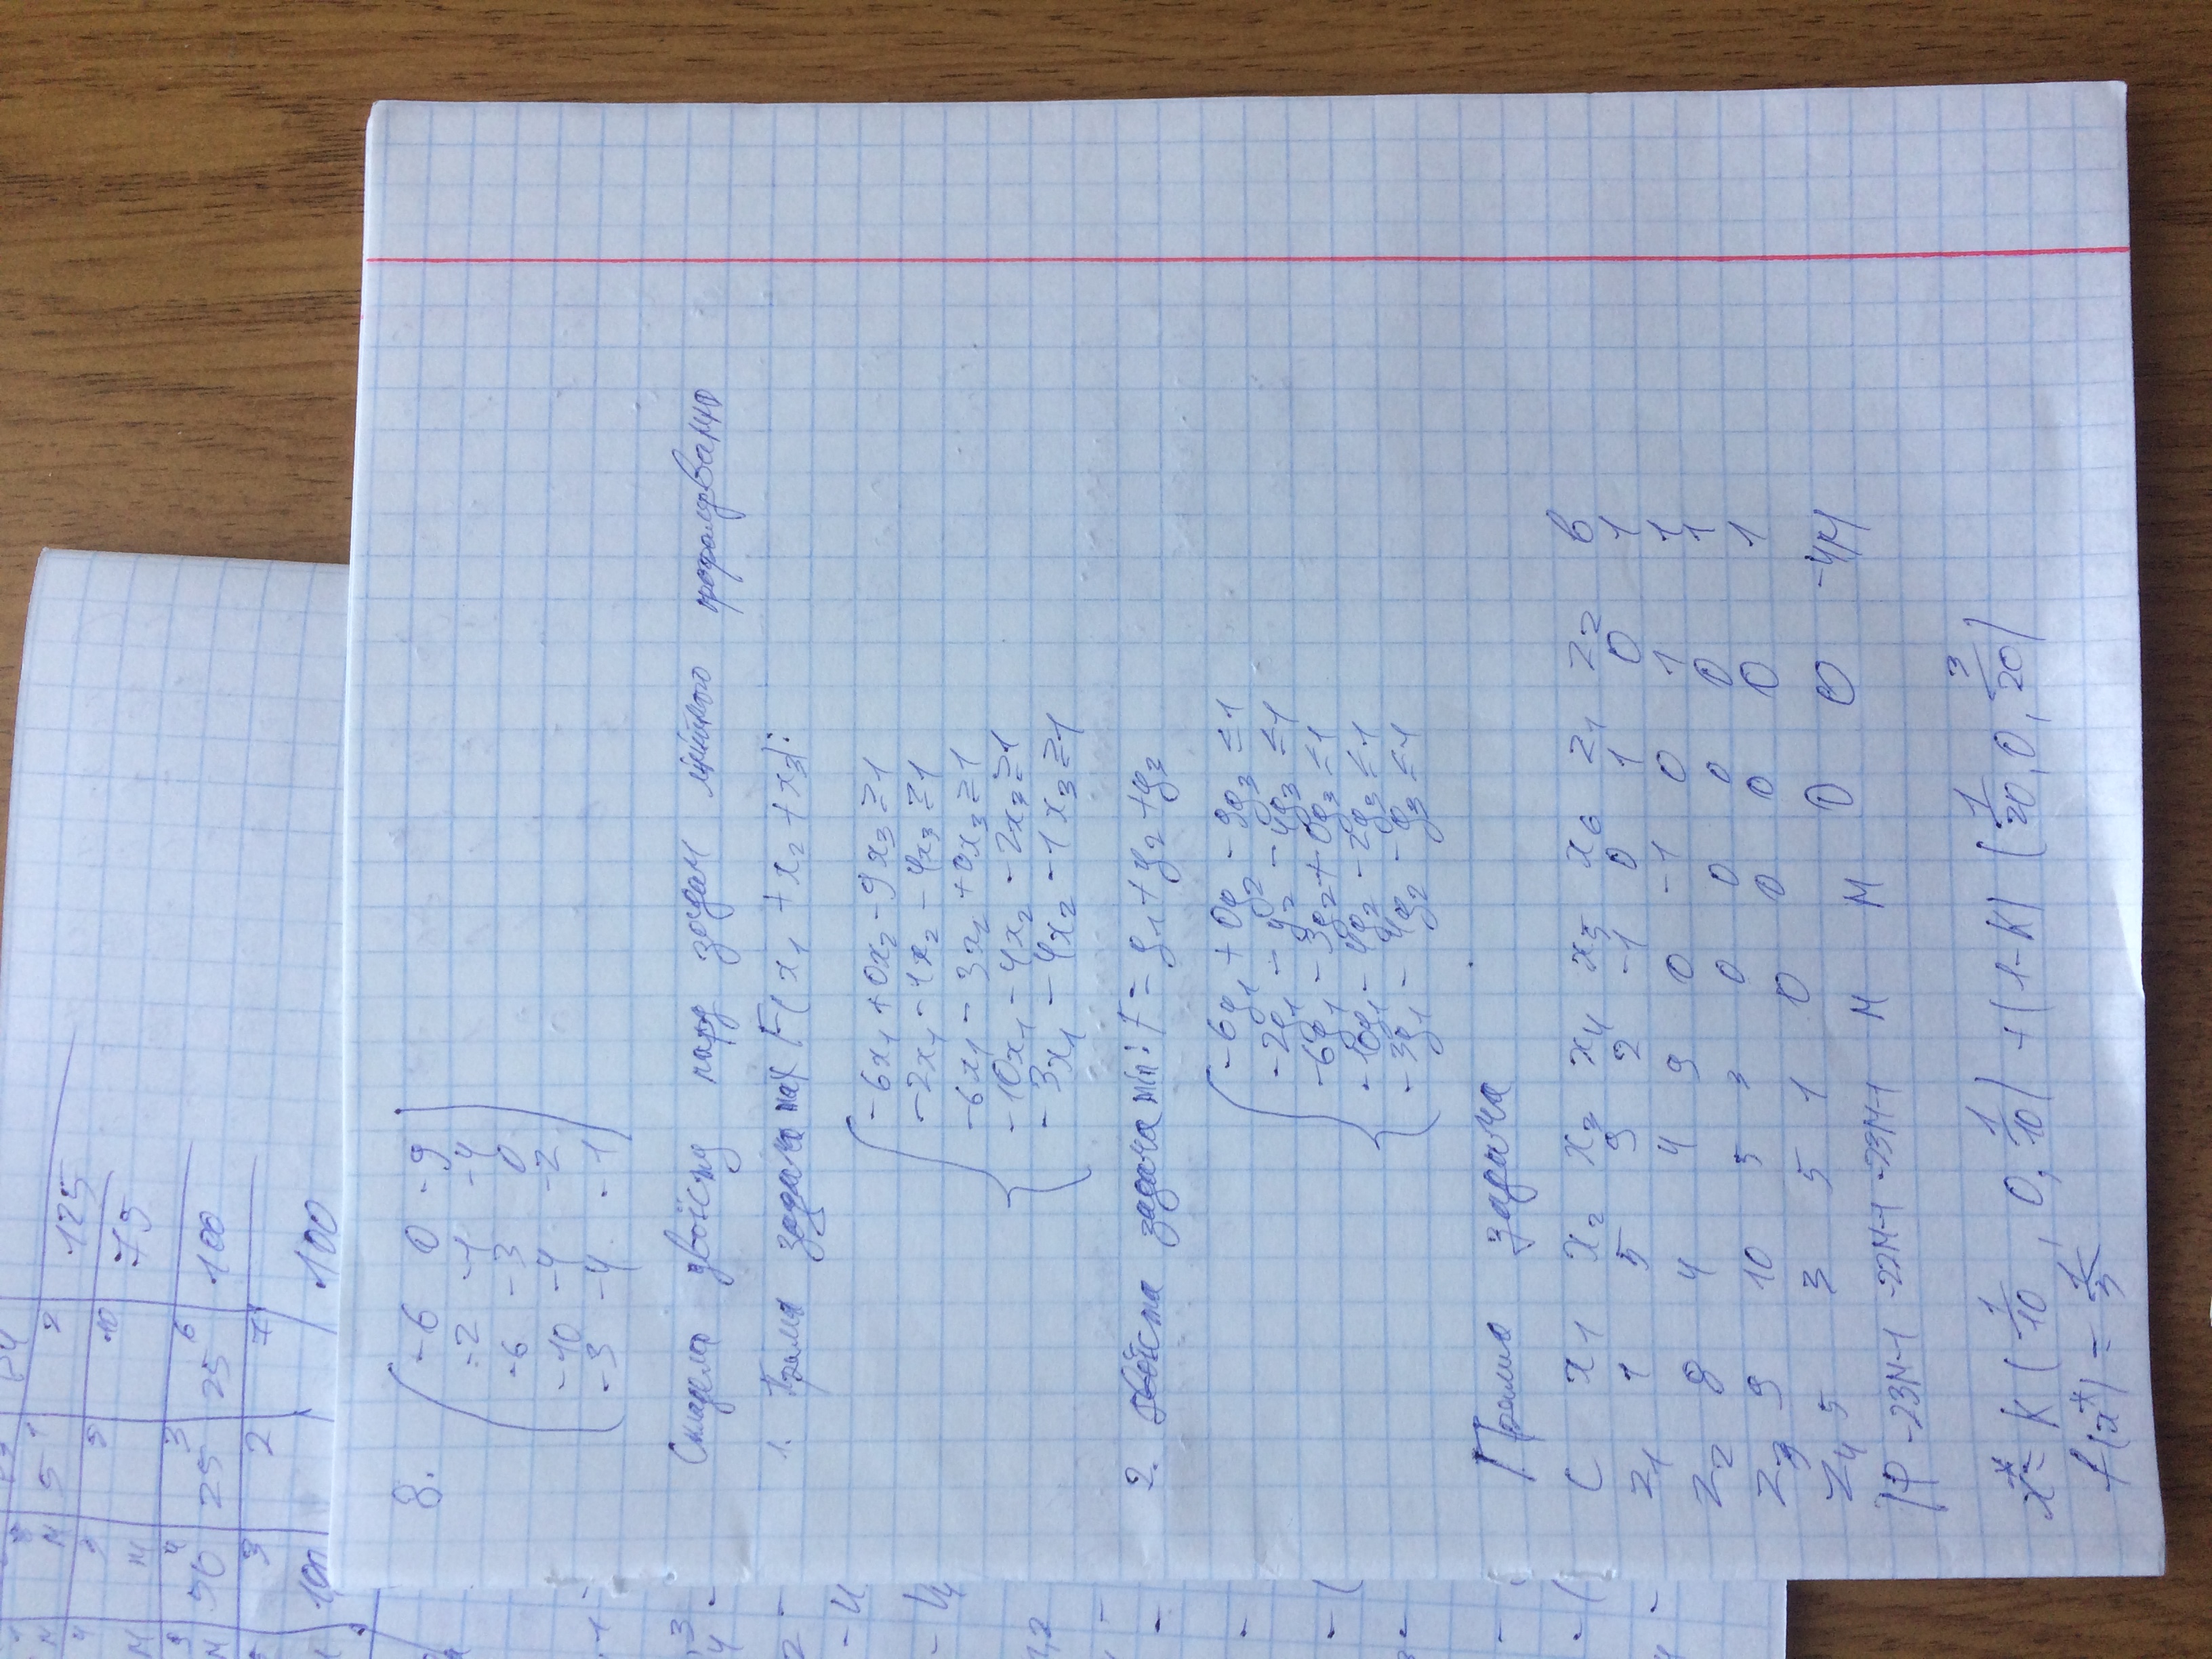 5 1 2 125
3 5 10 75
M M
4 3 6
50 25 25 100
3 2 7
100 100
8.
-6 0 -9
-2 -1 -4
-6 -3 0
-10 -4 -2
-3 -4 -1
Складемо двоїсту пару задач лінійного програмування
1. Пряма задача max F(x1 + x2 + x3):
-6x1 + 0x2 - 9x3 ≥ 1
-2x1 - 1x2 - 4x3 ≥ 1
-6x1 - 3x2 + 0x3 ≥ 1
-10x1 - 4x2 - 2x3 ≥ 1
-3x1 - 4x2 - 1x3 ≥ 1
2. двоїста задача min: F = y1 + y2 + y3
-6y1 + 0y2 - 9y3 ≤ 1
-2y1 - y2 - 4y3 ≤ 1
-6y1 - 3y2 + 0y3 ≤ 1
-10y1 - 4y2 - 2y3 ≤ 1
-3y1 - 4y2 - y3 ≤ 1
Пряма задача
C x1 x2 x3 x4 x5 x6 z1 z2 в
z1 1 5 9 2 -1 0 1 0 1
z2 8 4 4 9 0 -1 0 1 1
z3 9 10 5 3 0 0 0 0 1
z4 5 3 5 1 0 0 0 0 1
-23M-1 -22M-1 -23M-1 M M 0 0 -4M
x* = K (1/10, 0, 1/10) + (1-K) (1/20, 0, 3/20)
f(x*) = 1/3